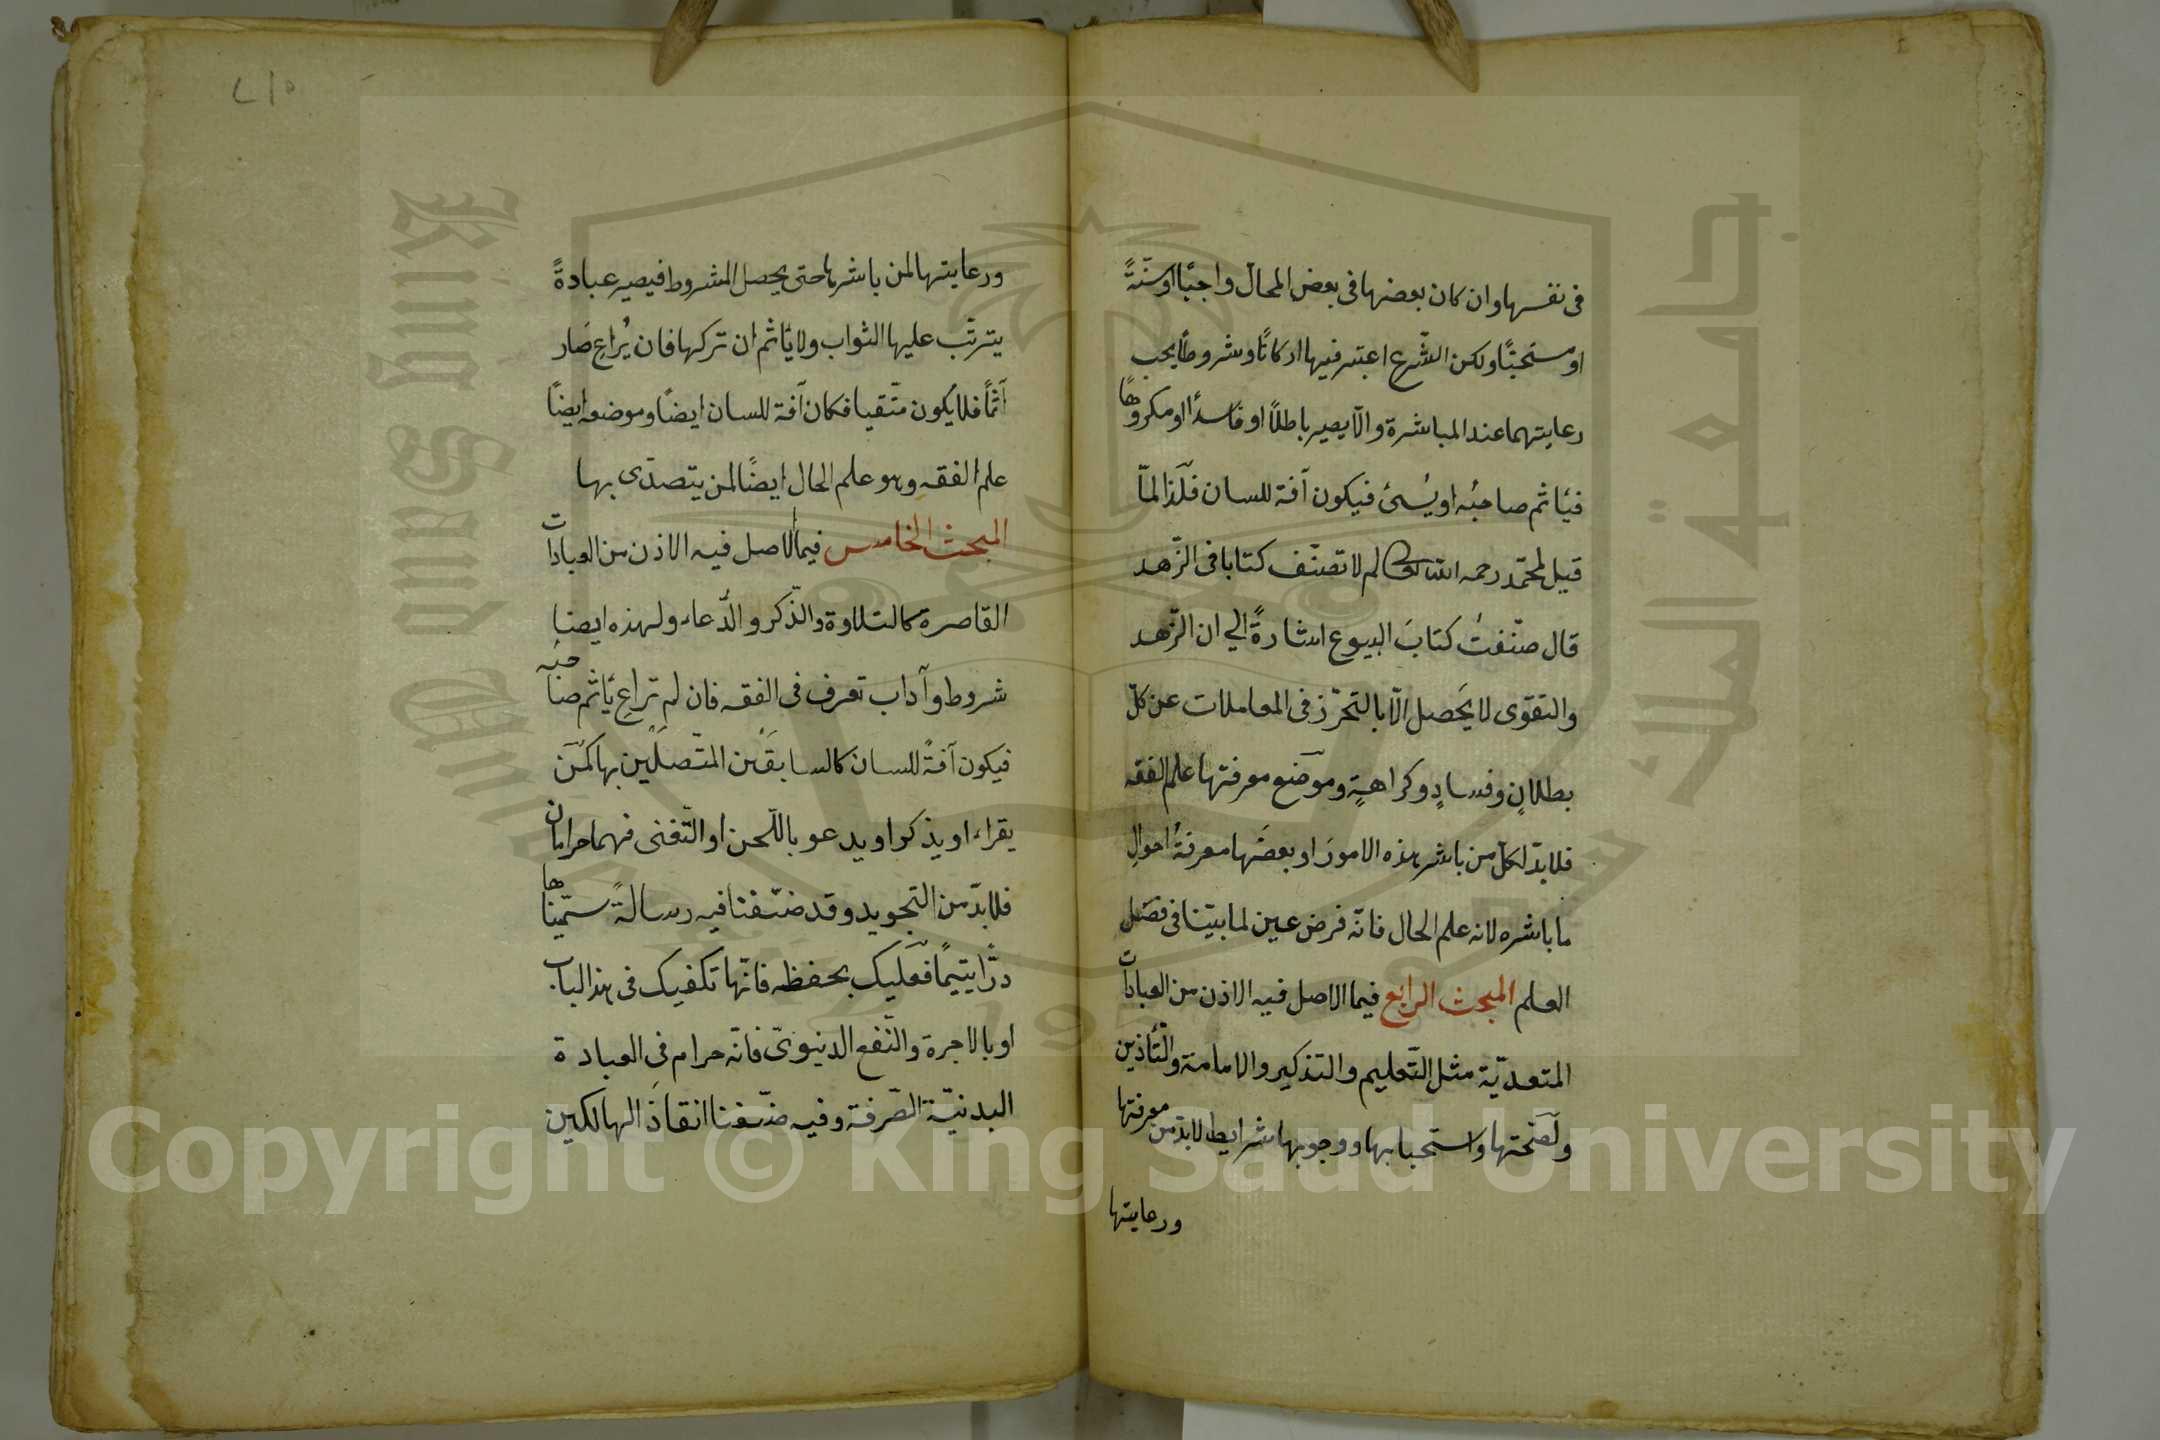 فى نفسها وان كان بعضها فى بعض المحالّ واجبًا او سنّةً
او مستحبًّا ولكن الشّرع اعتبر فيها اركانًا وشروطًا يجب
رعايتهما عند المباشرة والّا يصير باطلاً او فاسدًا او مكروهًا
فيأثم صاحبُه او يُسئ فيكون آفة للسان فلّذا لمّا
قيل لمحمّد رحمه الله لم لا تصنّف كتابا فى الزّهد
قال صنّفتُ كتابَ البيوع اشارةً الى ان الزّهد
والتقوى لا يَحصل الّا بالتحرّز فى المعاملات عن كلّ
بطلانٍ وفسادٍ وكراهةٍ وموضع معرفتها علم الفقه
فلا بدّ لكلّ من باشر هذه الامورَ او بعضَها معرفةُ احوالِ
ما باشره لانه علم الحال فانّه فرض عين لما بيّنا فى فصل
العلم المبحث الرابع فيما الاصل فيه الاذن من العبادات
المتعدّية مثل التّعليم والتذكير والامامة والتّأذين
ولصّحتها واستحبابها ووجوبها شرايط لا بدّ من معرفتها
ورعايتها
٢١٥
ورعايتها لمن باشرها حتى يحصل المشروط فيصير عبادةً
يترتّب عليها الثواب ولا يأثم ان تركها فان يُراعِ صَار
آثمًا فلا يكون متّقيا فكان آفة للسان ايضًا وموضعه ايضًا
علم الفقه وهو علم الحال ايضًا لمن يتصدّى بها
المبحث الخامس فيما الاصل فيه الاذن من العبادات
القاصرة كالتلاوة والذّكر والدّعاء ولهذه ايضا
شروط وآداب تعرف فى الفقه فان لم تراعِ يأثم صاحبُه
فيكون آفةً للسان كالسابقَين المتّصلَين بها كمَن
يقراء او يذكر او يدعو باللّحن او التّغنى فهما حرامان
فلا بدّ من التجويد وقد صنّفنا فيه رسالةً سمّيناها
درًّا يتيمًا فعليك بحفظه فانّها تكفيك فى هذا الباب
او بالاجرة والنّفع الدنيوىّ فانّه حرام فى العبادة
البدنيّة الصّرفة وفيه صنّفنا انقاذَ الهالكين
جامعة الملك سعود
King Saud University
1957
Copyright © King Saud University